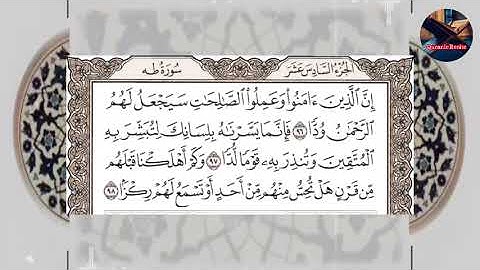 الجزء السادس عشر
سورة طه
إِنَّ ٱلَّذِينَ ءَامَنُوا۟ وَعَمِلُوا۟ ٱلصَّٰلِحَٰتِ سَيَجْعَلُ لَهُمُ
ٱلرَّحْمَٰنُ وُدًّا ٩٦ فَإِنَّمَا يَسَّرْنَٰهُ بِلِسَانِكَ لِتُبَشِّرَ بِهِ
ٱلْمُتَّقِينَ وَتُنذِرَ بِهِۦ قَوْمًا لُّدًّا ٩٧ وَكَمْ أَهْلَكْنَا قَبْلَهُم
مِّن قَرْنٍ هَلْ تُحِسُّ مِنْهُم مِّنْ أَحَدٍ أَوْ تَسْمَعُ لَهُمْ رِكْزًۢا ٩٨